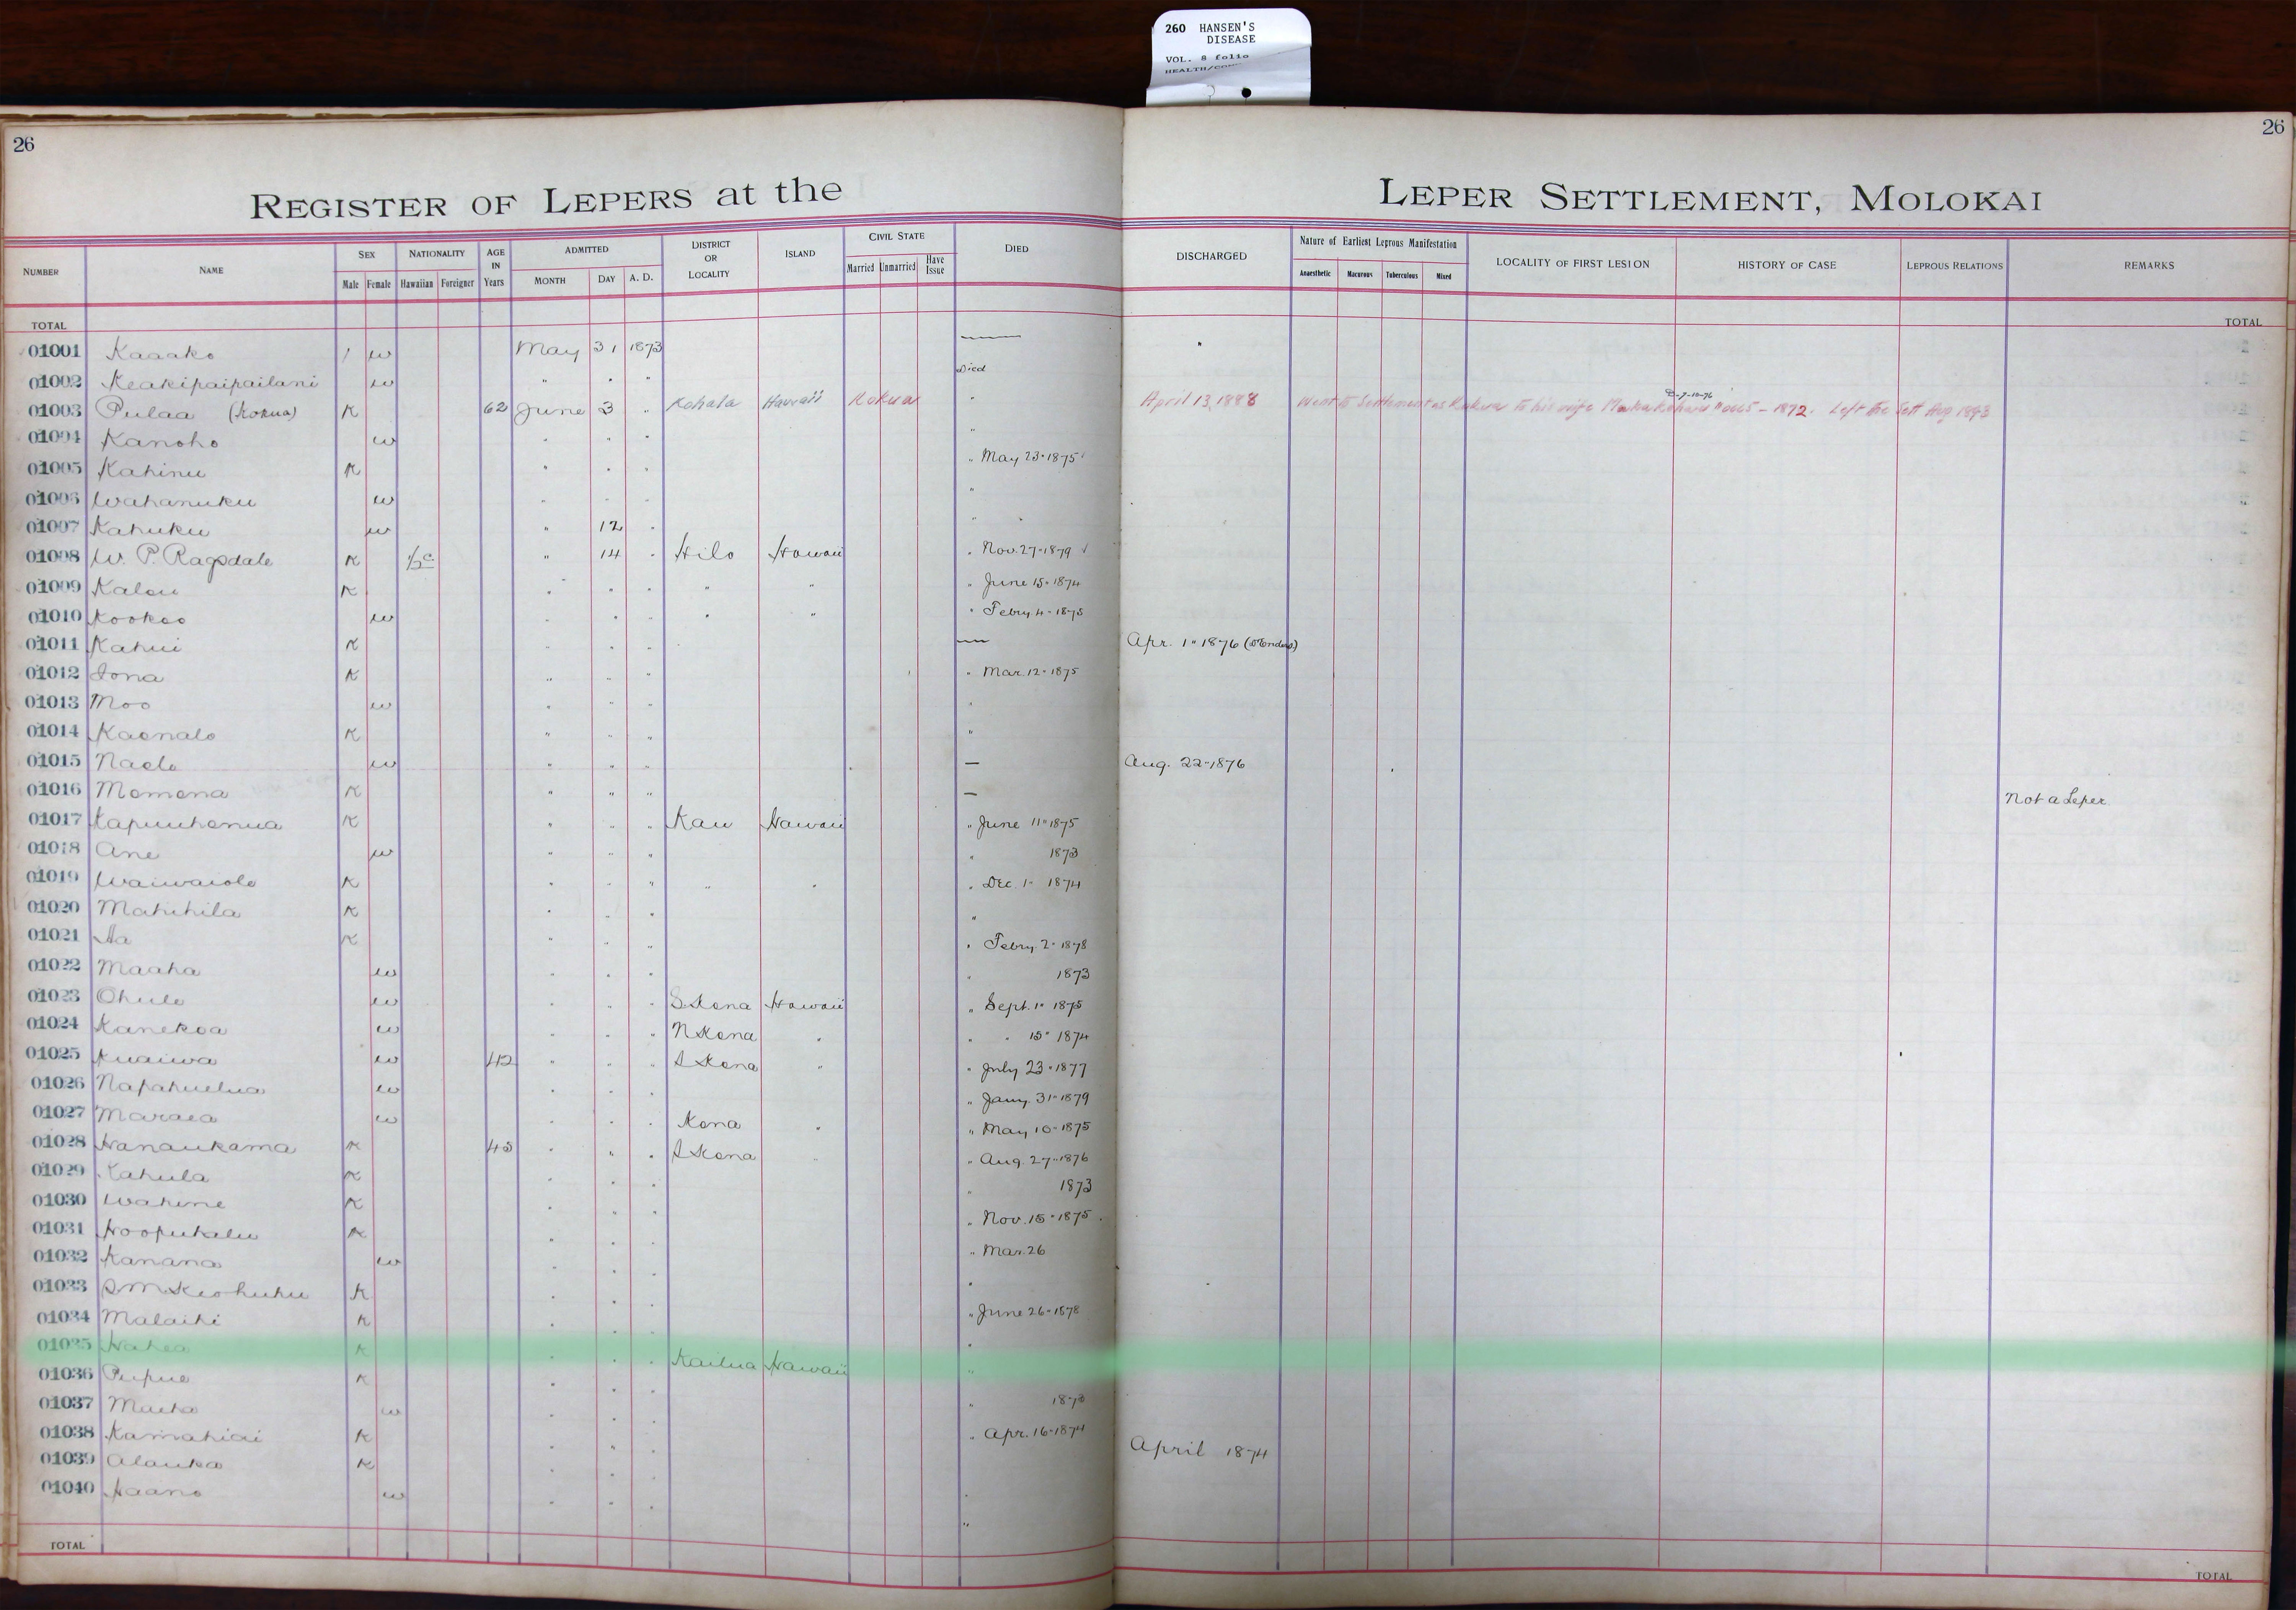 260 HANSEN'S
DISEASE
VOL. 8 folio
HEALTH/
26 26
REGISTER OF LEPERS at the LEPER SETTLEMENT, MOLOKAI
NUMBER NAME SEX NATIONALITY AGE IN Years ADMITTED DISTRICT OR LOCALITY ISLAND CIVIL STATE DIED DISCHARGED Nature of Earliest Leprous Manifestation LOCALITY OF FIRST LESION HISTORY OF CASE LEPROUS RELATIONS REMARKS
Male Female Hawaiian Foreigner MONTH DAY A. D. Married Unmarried Have Issue Anaesthetic Macurous Tuberculous Mixed
TOTAL TOTAL
01001 Kaaako 1 w May 31 1873 — "
01002 Keakipaipailani w " " " Died
01003 Pulaa (Kokua) K 62 June 3 " Kohala Hawaii Kokua " April 13, 1888 Went to Settlement as Kokua to his wife 1872. Left the Sett Aug 1893
01004 Kanoho w " " " "
01005 Kahinu K " " " " May 23 1875
01006 Wahanuku w " " " "
01007 Kahuku w " 12 " "
01008 W. P. Ragsdale K ½ c " 14 " Hilo Hawaii " Nov. 27 1879
01009 Kalou K " " " " " " June 15 1874
01010 Kookoo w " " " " " " Febry 4 - 1875
01011 Kahui K " " " — Apr. 1" 1876
01012 Iona K " " " " Mar. 12 1875
01013 Moo w " " " "
01014 Kaonalo K " " " "
01015 Naelo w " " " — Aug. 22 - 1876
01016 Momona K " " " — Not a Leper
01017 Kapuuhonua K " " " Kau Hawaii " June 11" 1875
01018 Ane w " " " " 1873
01019 Waiwaiole K " " " " " " Dec. 1 - 1874
01020 Mahihila K " " " "
01021 Aa K " " " " Febry. 2 1878
01022 Maaha w " " " " 1873
01023 Ohule w " " " S. Kona Hawaii " Sept. 1" 1875
01024 Kanekoa w " " " N Kona " " " 15" 1874
01025 Kuaiwa w 42 " " " S Kona " " July 23 1877
01026 Napahuelua w " " " " Jany. 31" 1879
01027 Maraea w " " " Kona " " May 10 - 1875
01028 Hanaukama K 45 " " " S Kona " " Aug. 27" 1876
01029 Kahula K " " " " 1873
01030 Wahine K " " " " Nov. 15" 1875
01031 Hoopukalu K " " " " Mar. 26
01032 Kanana w " " " "
01033 S M Keohuhu K " " " " June 26 - 1878
01034 Malaihi K " " " "
01035 Hahea K " " " Kailua Hawaii "
01036 Pupue K " " " " 1873
01037 Maeha w " " " " Apr. 16 - 1874
01038 Kamahiai K " " " April 1874
01039 Alauka K " " " "
01040 Haano w " " " "
TOTAL TOTAL